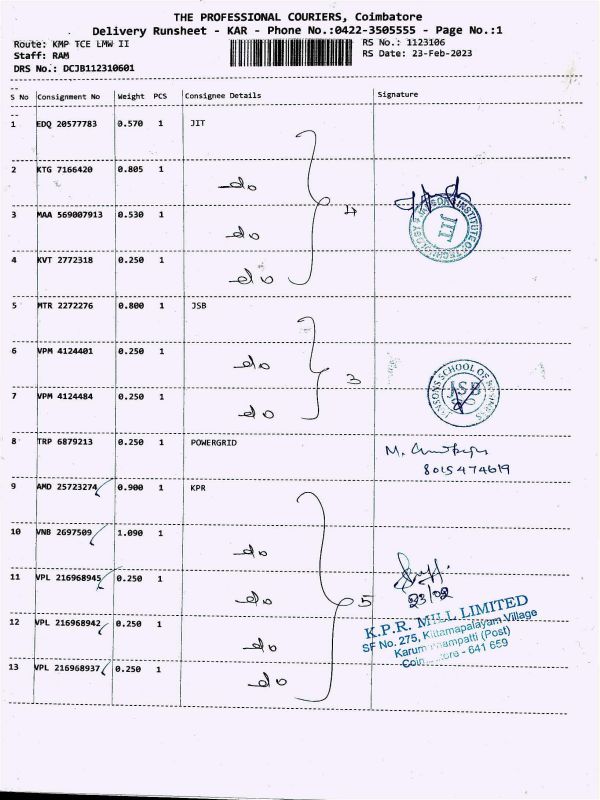 THE PROFESSIONAL COURIERS, Coimbatore
Delivery Runsheet - KAR - Phone No.:0422-3505555 - Page No.:1
Route: KMP TCE LMW II RS No.: 1123106
Staff: RAM RS Date: 23-Feb-2023
DRS No.: DCJB112310601
S No Consignment No Weight PCS Consignee Details Signature
1 EDQ 20577783 0.570 1 JIT
2 KTG 7166420 0.805 1 do
3 MAA 569007913 0.530 1 do 4
4 KVT 2772318 0.250 1 do
JIT
5 MTR 2272276 0.800 1 JSB
6 VPM 4124401 0.250 1 do
3
7 VPM 4124484 0.250 1 do
JSB
8 TRP 6879213 0.250 1 POWERGRID M.
8015474619
9 AMD 25723274 0.900 1 KPR
10 VNB 2697509 1.090 1 do
11 VPL 216968945 0.250 1 do 5
23/02
12 VPL 216968942 0.250 1 do
K.P.R. MILL LIMITED
SF No. 275, Kittamapalayam Village
(Post)
- 641 659
13 VPL 216968937 0.250 1 do